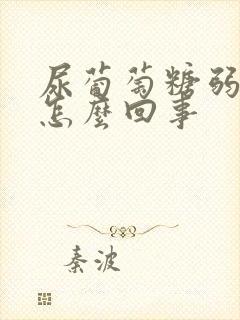 尿葡萄糖弱
怎麼回事
秦波